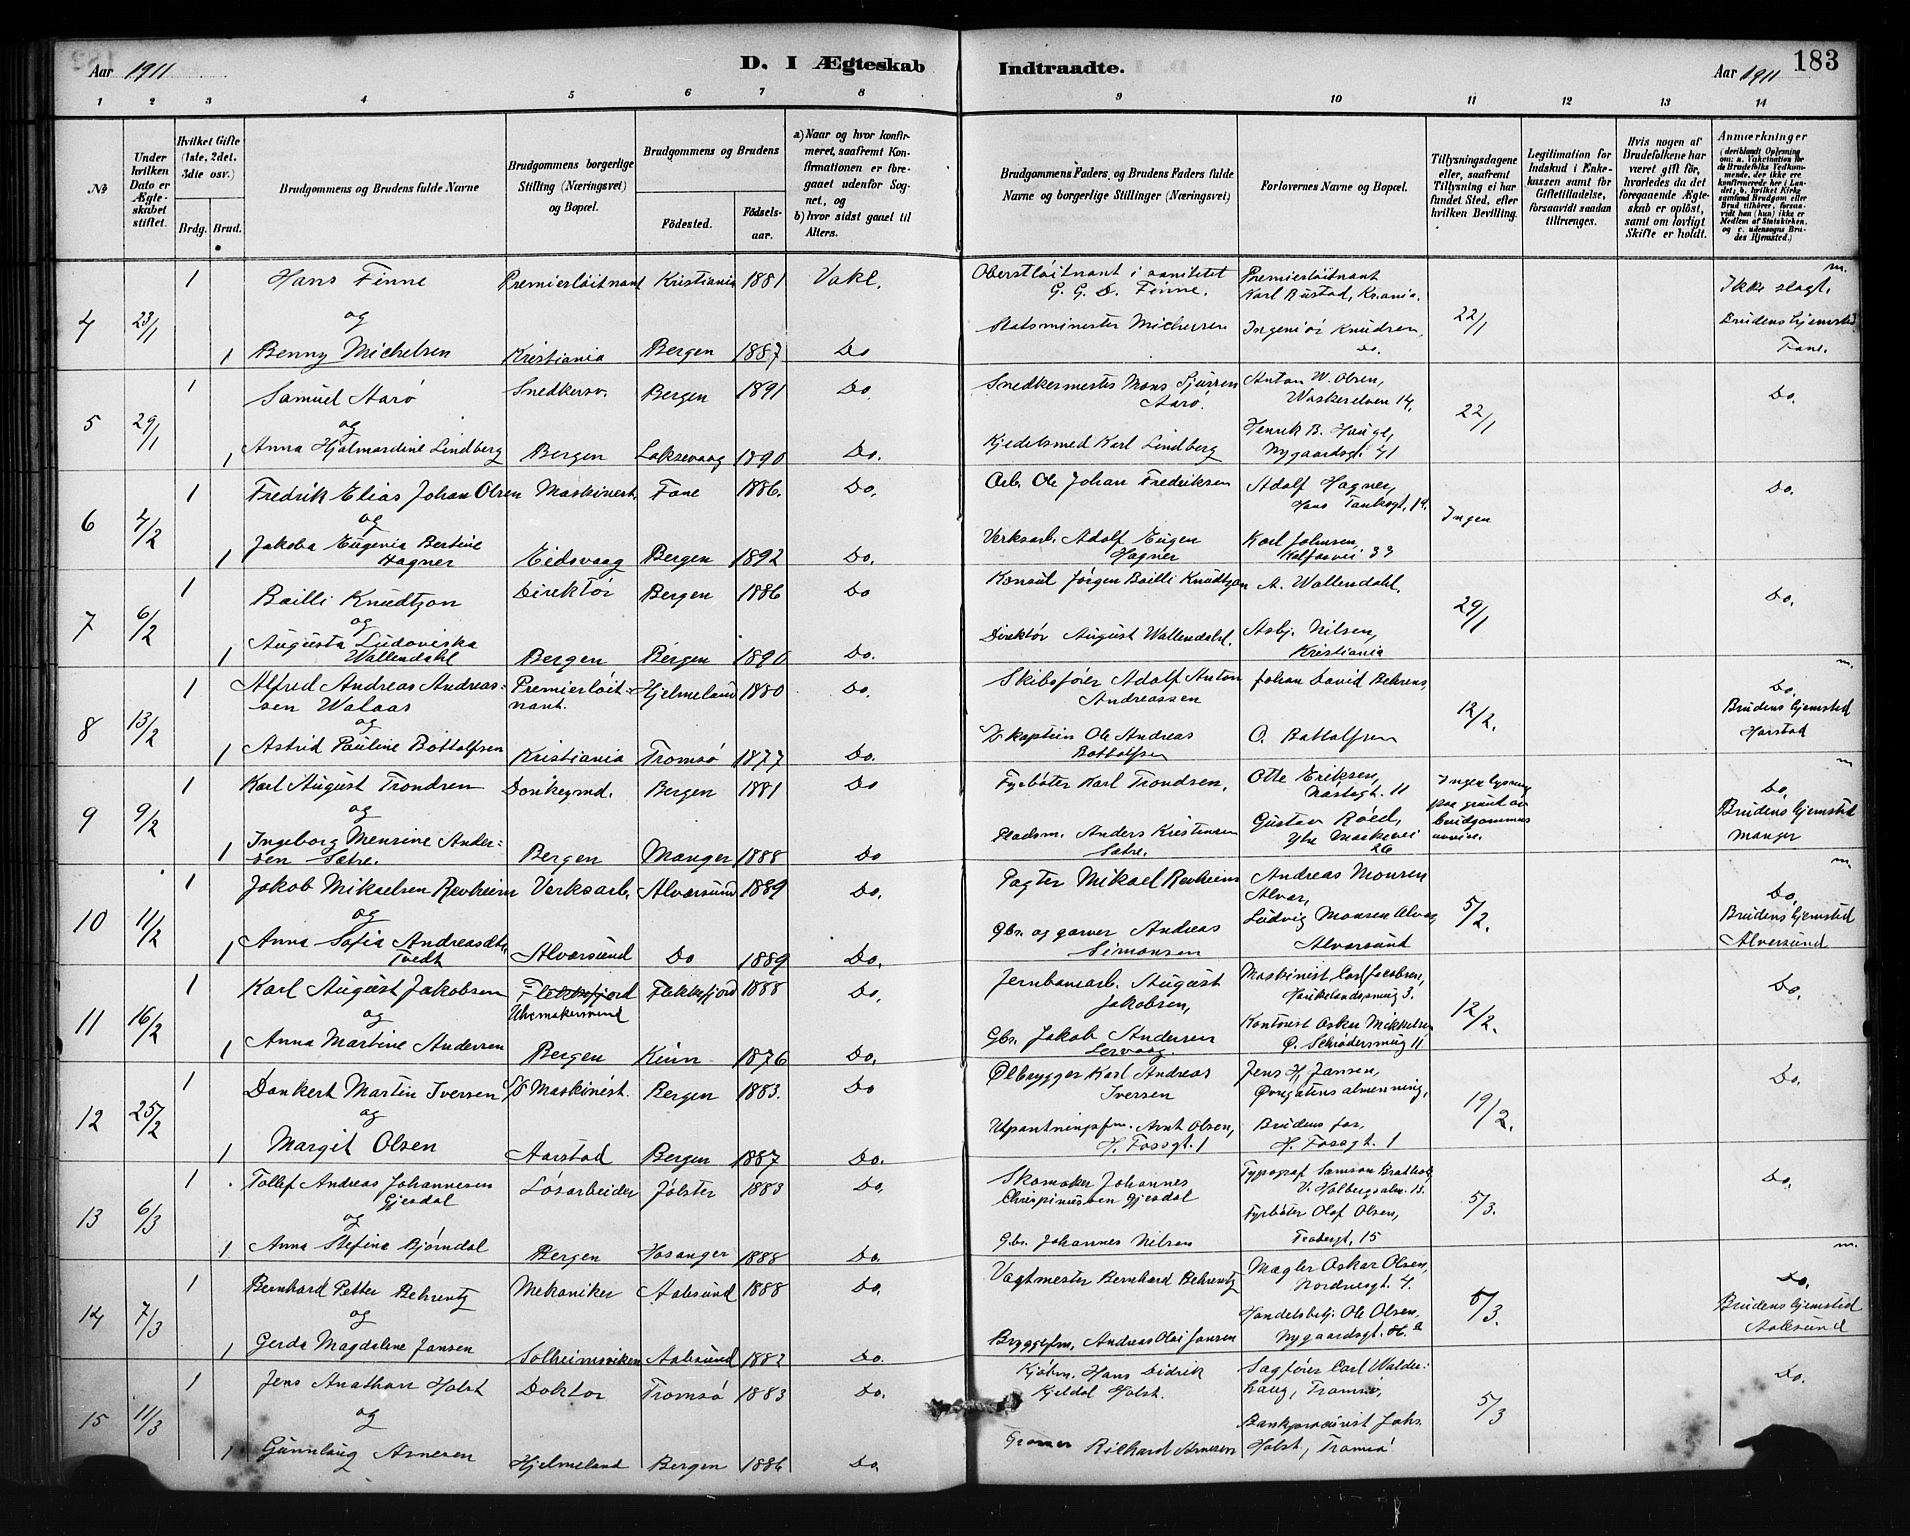 Aar 1911
D. I Ægteskab Indtraadte.
Aar 1911 183
1 2 3 4 5 6 7 8 9 10 11 12 13 14
№
Under hvilken Dato er Ægteskabet stiftet.
Hvilket Gifte (1ste, 2det, 3die osv.)
Brdg. Brud.
Brudgommens og Brudens fulde Navne
Brudgommens borgerlige Stilling (Næringsvei) og Bopæl.
Brudgommens og Brudens
Fødested.
Fødselsaar.
a) Naar og hvor konfirmeret, saafremt Konfirmationen er foregaaet udenfor Sognet, og
b) hvor sidst gaaet til Alters.
Brudgommens Faders og Brudens Faders fulde Navne og borgerlige Stillinger (Næringsvei)
Forlovernes Navne og Bopæl.
Tillysningsdagene eller, saafremt Tillysning ei har fundet Sted, efter hvilken Bevilling.
Legitimation for Indskud i Enkekassen samt for Giftetilladelse, forsaavidt saadan tiltrænges.
Hvis nogen af Brudefolkene har været gift før, hvorledes da det foregaaende Ægteskab er opløst, samt om lovligt Skifte er holdt.
Anmærkninger
4 23/1 1 Hans Finne Premierløitnant Kristiania 1881 Vakl. Oberstløitnant i sanitetet G. G. D. Finne. Premierløitnant Karl Rustad, Kr.ania. 22/1 Ikke slægt.
og
1 Benny Michelsen Kristiania Bergen 1887 Do Statsminister Michelsen Ingeniør Knudsen do. Brudens hjemsted Fane.
5 29/1 1 Samuel Aarø Snedkersv. Bergen 1891 Do. Snedkermester Mons Sjursen Aarø. Anton W. Olsen, 14. 22/1 Do.
og
1 Anna Hjalmardine Lindberg Bergen Laksevaag 1890 Do. Kjedelsmed Karl Lindberg Henrik B. Hauge, Nygaardsgt. 41
6 4/2 1 Fredrik Elias Johan Olsen Maskinist Fane 1886. Do. Arb. Ole Johan Fredriksen Adolf Hagner, Hans Tanksgt. 19. Ingen Do.
og
1 Jakoba Eugenia Bertine Hagner Eidsvaag Bergen 1892 Do. Verksarb. Adolf Eugen Hagner Karl Johnsen, Kalfarvei 33
7 6/2 1 Bailli Knudtzon Direktør Bergen 1886 Do Konsul Jørgen Bailli Knudtzon A. Wallendahl. 29/1 Do.
og
1 Augusta Ludoviska Wallendahl Bergen Bergen 1890 Do. Direktør August Wallendahl. Asbj. Nilsen, Kristiania
8 13/2 1 Alfred Andreas Andreassen Walaas Premierløitnant. Hjelmeland 1880 Do. Skibsfører Adolf Anton Andreassen Johan David Behrens, 12/2. Do.
og
1 Astrid Pauline Bottolfsen Kristiania Tromsø 1877 Do. D.kaptein Ole Andreas Bottolfsen O. Bottolfsen Brudens hjemsted Harstad
9 9/2 1 Karl August Trondsen Donkeymd. Bergen 1881 Do Fyrbøter Karl Trondsen, Otto Eriksen, Nøstegt. 11 Ingen lysning paa grund av brudgommens avreise. Do.
og
1 Ingeborg Mensine Andersen Sætre. Bergen Manger 1888 Do Pladsm. Anders Kristensen Sætre. Gustav Røed, Ytre Markevei 26 Brudens hjemsted Manger
10 11/2 1 Jakob Mikaelsen Revheim Verksarb. Alversund 1889 Do. Pagter Mikael Revheim Andreas Monsen Alver, 5/2. Do.
og
1 Anna Sofia Andreasdtr. Tvedt Alversund Do 1889 Do. Gbr. og garver Andreas Simonsen Ludvig Monsen Alver, Alversund Brudens hjemsted Alversund
11 16/2 1 Karl August Jakobsen Flekkefjord Uhrmakersvend Flekkefjord 1888 Do. Jernbanearb. August Jakobsen, Maskinist Carl Jacobsen, Haukelandssmug 3. 12/2. Do.
og
1 Anna Martine Andersen Bergen Kinn 1876 Do. Gbr. Jakob Andersen Lervaag. Kontorist Oskar Mikkelsen Ø. Schrødersmug 11
12 25/2 1 Dankert Martin Iversen D/S Maskinist. Bergen 1883. Do Ølbrygger Karl Andreas Iversen Jens H. Jansen, Øvregatens almenning, 19/2. Do.
og
1 Margit Olsen Aarstad Bergen 1887 Do. Utpantningsfm. Arnt Olsen, H. Fossgt. 1 Brudens far, H. Fossgt. 1
13 6/3 1 Tollef Andreas Johannesen Gjesdal Løsarbeider Jølster 1883 Do. Skomaker Johannes Chrispinussen Gjesdal Typograf Samson Bratholm V. Holbergsalm. 13. 5/3. Do.
og
1 Anna Stefina Bjørndal Bergen Hosanger 1888 Do. Gbr. Johannes Nilsen Fyrbøter Olaf Olsen, 15
14 7/3 1 Bernhard Petter Behrentz Mekaniker Aalesund 1888 Do. Vagtmester Bernhard Behrentz Mægler Oskar Olsen, Nordnesgt. 4. 5/3. Do.
og
1 Gerda Magdalene Jansen Solheimsviken Aalesund 1882 Do. Byggefm. Andreas Olai Jansen Handelsbetj. Ole Olsen, Nygaardsgt. Brudens hjemsted Aalesund
15 11/3 1 Jens Anathon Holst Doktor Tromsø 1883 Do. Kjøbm. Hans Didrik Kjeldal Holst. Sagfører Carl Walderhaug, Tromsø, 5/3 Do.
og
1 Gunnlaug Arnesen Hjelmeland Bergen 1886 Do Richard Arnesen Bankprocurist Johs. Holst, Tromsø